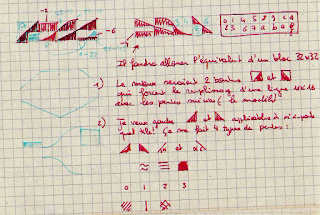 -2
-6
0 1 4 5 8 9 c d
2 3 6 7 a b e f
Il faudra allouer l'équivalent d'un bloc 32x32
1) Le mieux seraient 2 boutons et
qui forcent le remplissage d'une ligne 16x16
avec les pentes mises (le modèle)
2) Je veux garder et applicables à n'importe
quel tile! Ça me fait 4 types de pentes:
0 1 2 3